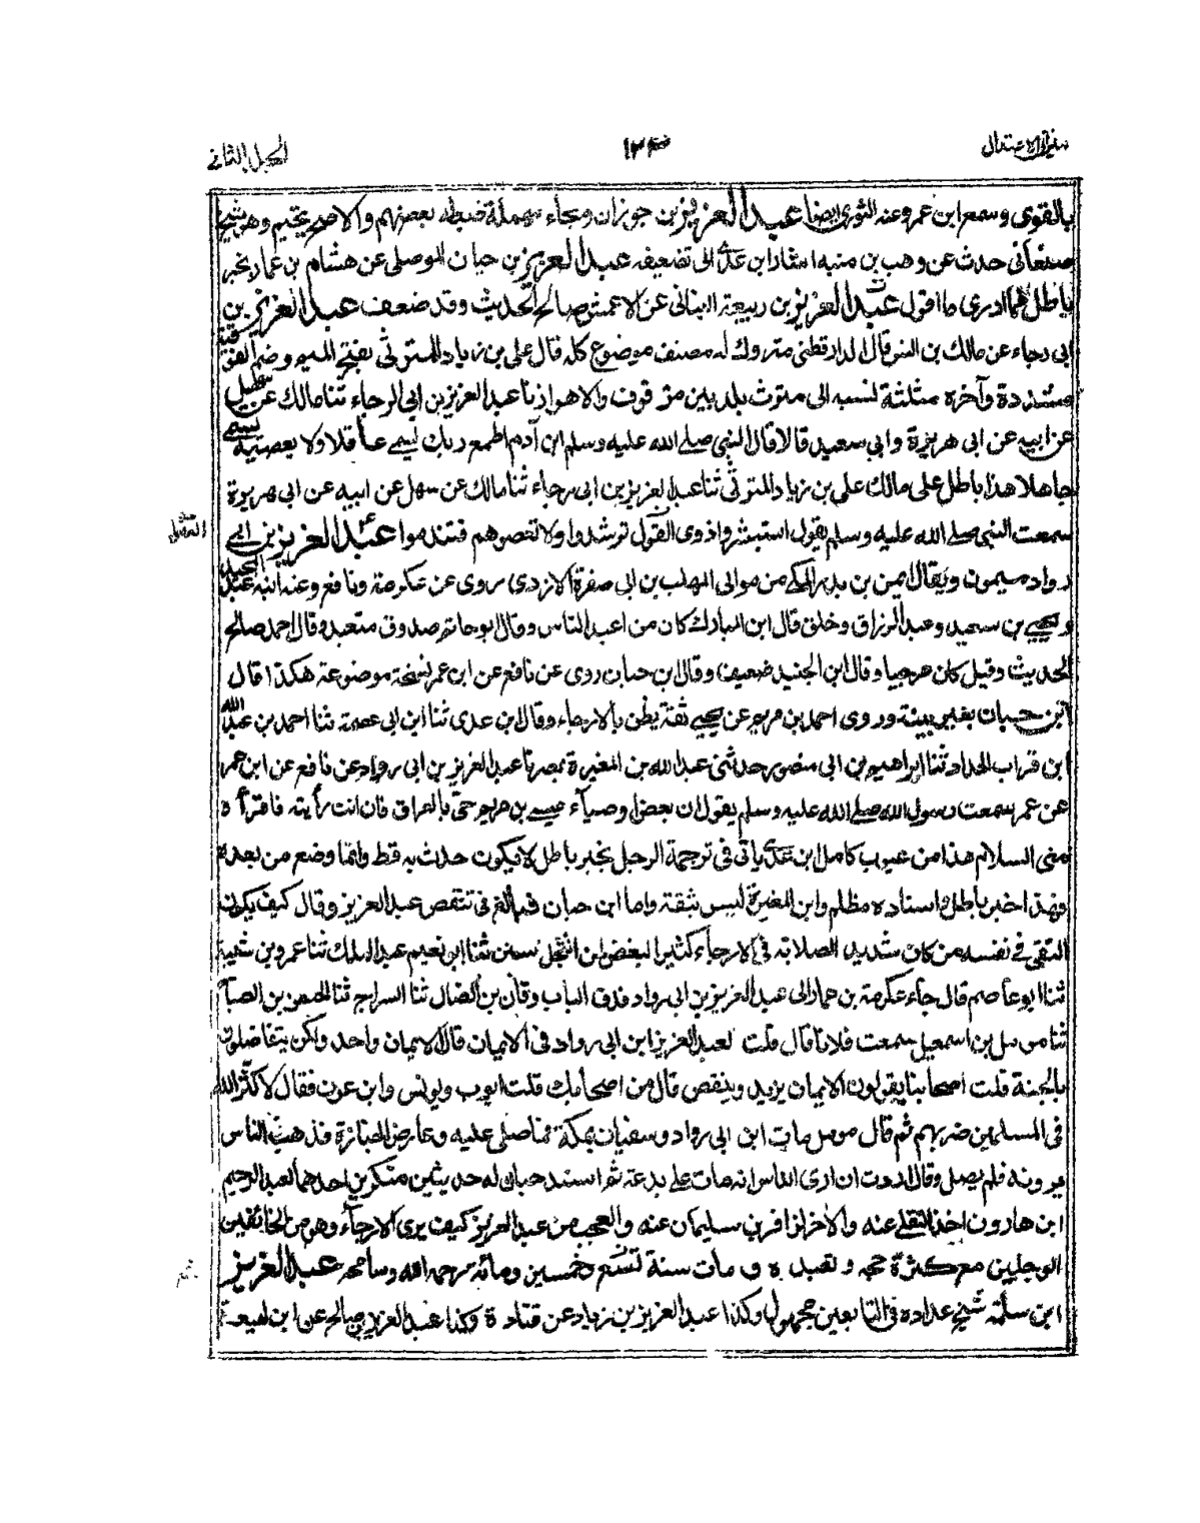 ميزان الاعتدال ١٢٤ المجلد الثاني
بالقوى وسمع ابن عمر وعنه الثورى ايضا عبد العزيز بن جوزان وبحاء مهملة ضبطه بعضهم والاصح بجيم وهو شيخ
صنعانى حدث عن وهب بن منبه اشار ابن عدى الى تضعيفه عبد العزيز بن حيان الموصلى عن هشام بن عمار بخبر
باطل فما ادرى ما اقول عبد العزيز بن ربيعة البنانى عن الاعمش صالح الحديث وقد ضعف عبد العزيز بن
ابى رجاء عن مالك بن انس قال الدارقطنى متروك له مصنف موضوع كله قال على بن زياد المتوثى بفتح الميم وضم الفوقية
مشددة وآخره مثلثة نسبه الى متوث بلد بين قرقوف والاهواز نا عبد العزيز بن ابى الرجاء ثنا مالك عن سهيل
عن ابيه عن ابى هريرة وابى سعيد قالا قال النبى صلے الله عليه وسلم ابن آدم اطع ربك تسمے عاقلا ولا تعصيه تسمے
جاهلا هذا باطل على مالك على بن زياد المتوثى ثنا عبد العزيز بن ابى رجاء ثنا مالك عن سهل عن ابيه عن ابى هريرة
سمعت النبى صلے الله عليه وسلم يقول استشيروا ذوى العقول ترشدوا ولا تعصوهم فتندموا عبد العزيز بن ابے
رواد ميمون ويقال ايمن بن بدر المكے من موالى المهلب بن ابى صفرة الازدى روى عن عكرمة ونافع وعنه ابنه عبد المجيد
ويحيے بن سعيد وعبد الرزاق وخلق قال ابن المبارك كان من اعبد الناس وقال ابو حاتم صدوق متعبد وقال احمد صالح
الحديث وقيل كان مرجيا وقال ابن الجنيد ضعيف وقال ابن حبان روى عن نافع عن ابن عمر نسخة موضوعة هكذا قال
ابن حبان بغير بينة وروى احمد بن مريم عن يحيے ثقة يظن بالارجاء وقال ابن عدى ثنا ابن ابى عصمة ثنا احمد بن عبد الله
ابن قراب الحداد ثنا ابراهيم بن ابى منصور حدثنى عبد الله بن المغيرة بمصر نا عبد العزيز بن ابى رواد عن نافع عن ابن عمر
عن عمر سمعت رسول الله صلے الله عليه وسلم يقول ان بعض اوصياء عيسے بن مريم حى بالعراق فان انت رأيته فاقرأه
منى السلام هذا من عيوب كامل ابن عدى ياتى فى ترجمة الرجل بخبر باطل لا يكون حدث به قط وانما وضع من بعده
فهذا خبر باطل واسناده مظلم وابن المغيرة ليس بثقة واما ابن حبان فبالغ فى تنقص عبد العزيز وقال كيف يكون
التقى فى نفسه من كان شديد الصلابة فى الارجاء كثير البغض لمن انتحل سنن ثنا ابو نعيم عبد الملك ثنا عمرو بن شبية
ثنا ابو عاصم قال جاء عكرمة بن عمار الى عبد العزيز بن ابى رواد فدق الباب وقال اين الضال ثنا السراج ثنا الحسن بن الصباح
ثنا مومل بن اسمعيل سمعت فلانا قال قلت لعبد العزيز ابن ابى رواد فى الايمان قال الايمان واحد ولكن يتفاضلون
بالجنة قلت اصحابنا يقولون الايمان يزيد وينقص قال من اصحابك قلت ايوب ويونس وابن عون فقال لا كثر الله
فى المسلمين ضربهم ثم قال مومل مات ابن ابى رواد وسفيان بمكة فما صلى عليه وعارض الجنازة فذهب الناس
يرونه فلم يصل وقال اردت ان ارى الناس انه مات على بدعة ثم اسند حبان له حديثين منكرين احدهما لعبد الرحيم
ابن هارون احد التقلے عنه والآخر لزافر بن سليمان عنه والعجب من عبد العزيز كيف يرى الارجاء وهو من الخائفين
الوجلين مع كثرة حجه وتعبده ومات سنة تسع وخمسين ومائة رحمه الله وسامحه عبد العزيز
ابن سلمة شيخ عداده فى التابعين مجهول وكذا عبد العزيز بن زياد عن قتادة وكذا عبد العزيز بن صالح عن ابن لهيعة